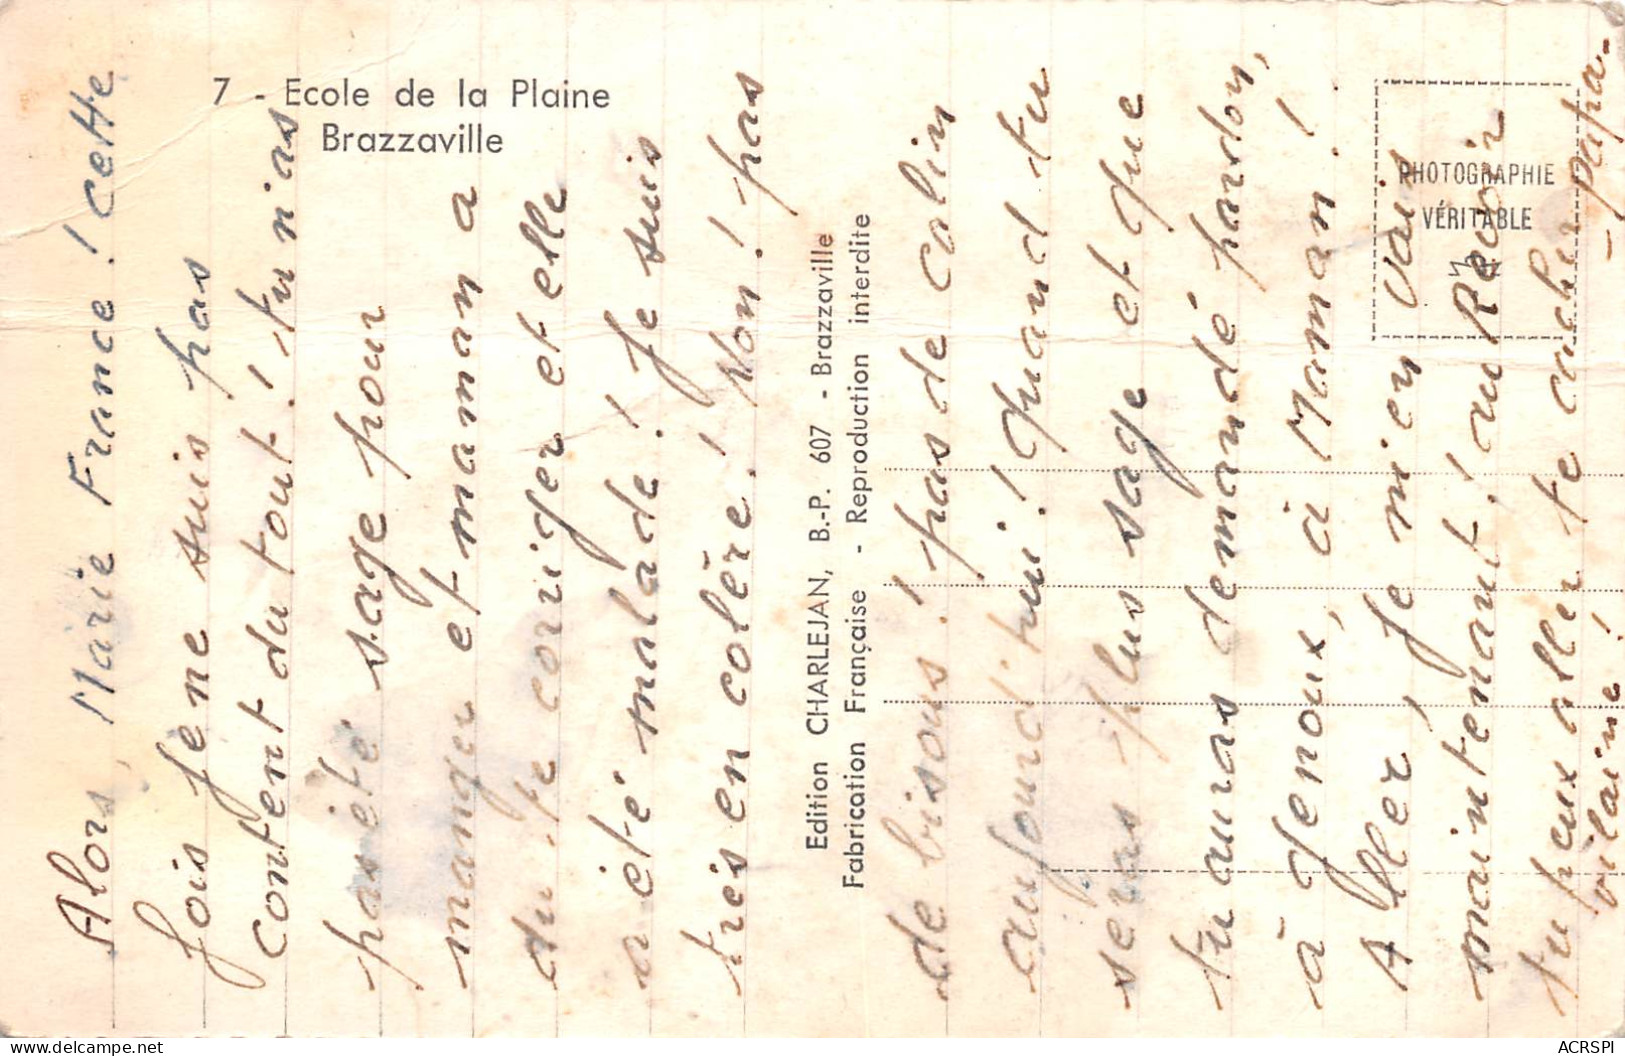 7 - Ecole de la Plaine
Brazzaville
Alors, Marie France ! cette
fois je ne suis pas
content du tout ! tu n'as
pas été sage pour
manger et maman a
du te corriger et elle
a été malade ! Je suis
très en colère ! Non ! pas
Edition CHARLEJAN, B.-P. 607 - Brazzaville
Fabrication Française - Reproduction interdite
de bisous ! pas de calin
aujourd'hui ! Quand tu
séras plus sage et que
tu auras demandé pardon,
à genoux, à Maman !
Aller, je m'en vais
maintenant ! au Revoir
tu peux aller te cacher
vilaine !
- papa -
PHOTOGRAPHIE
VÉRITABLE
delcampe.net
ACRSPI